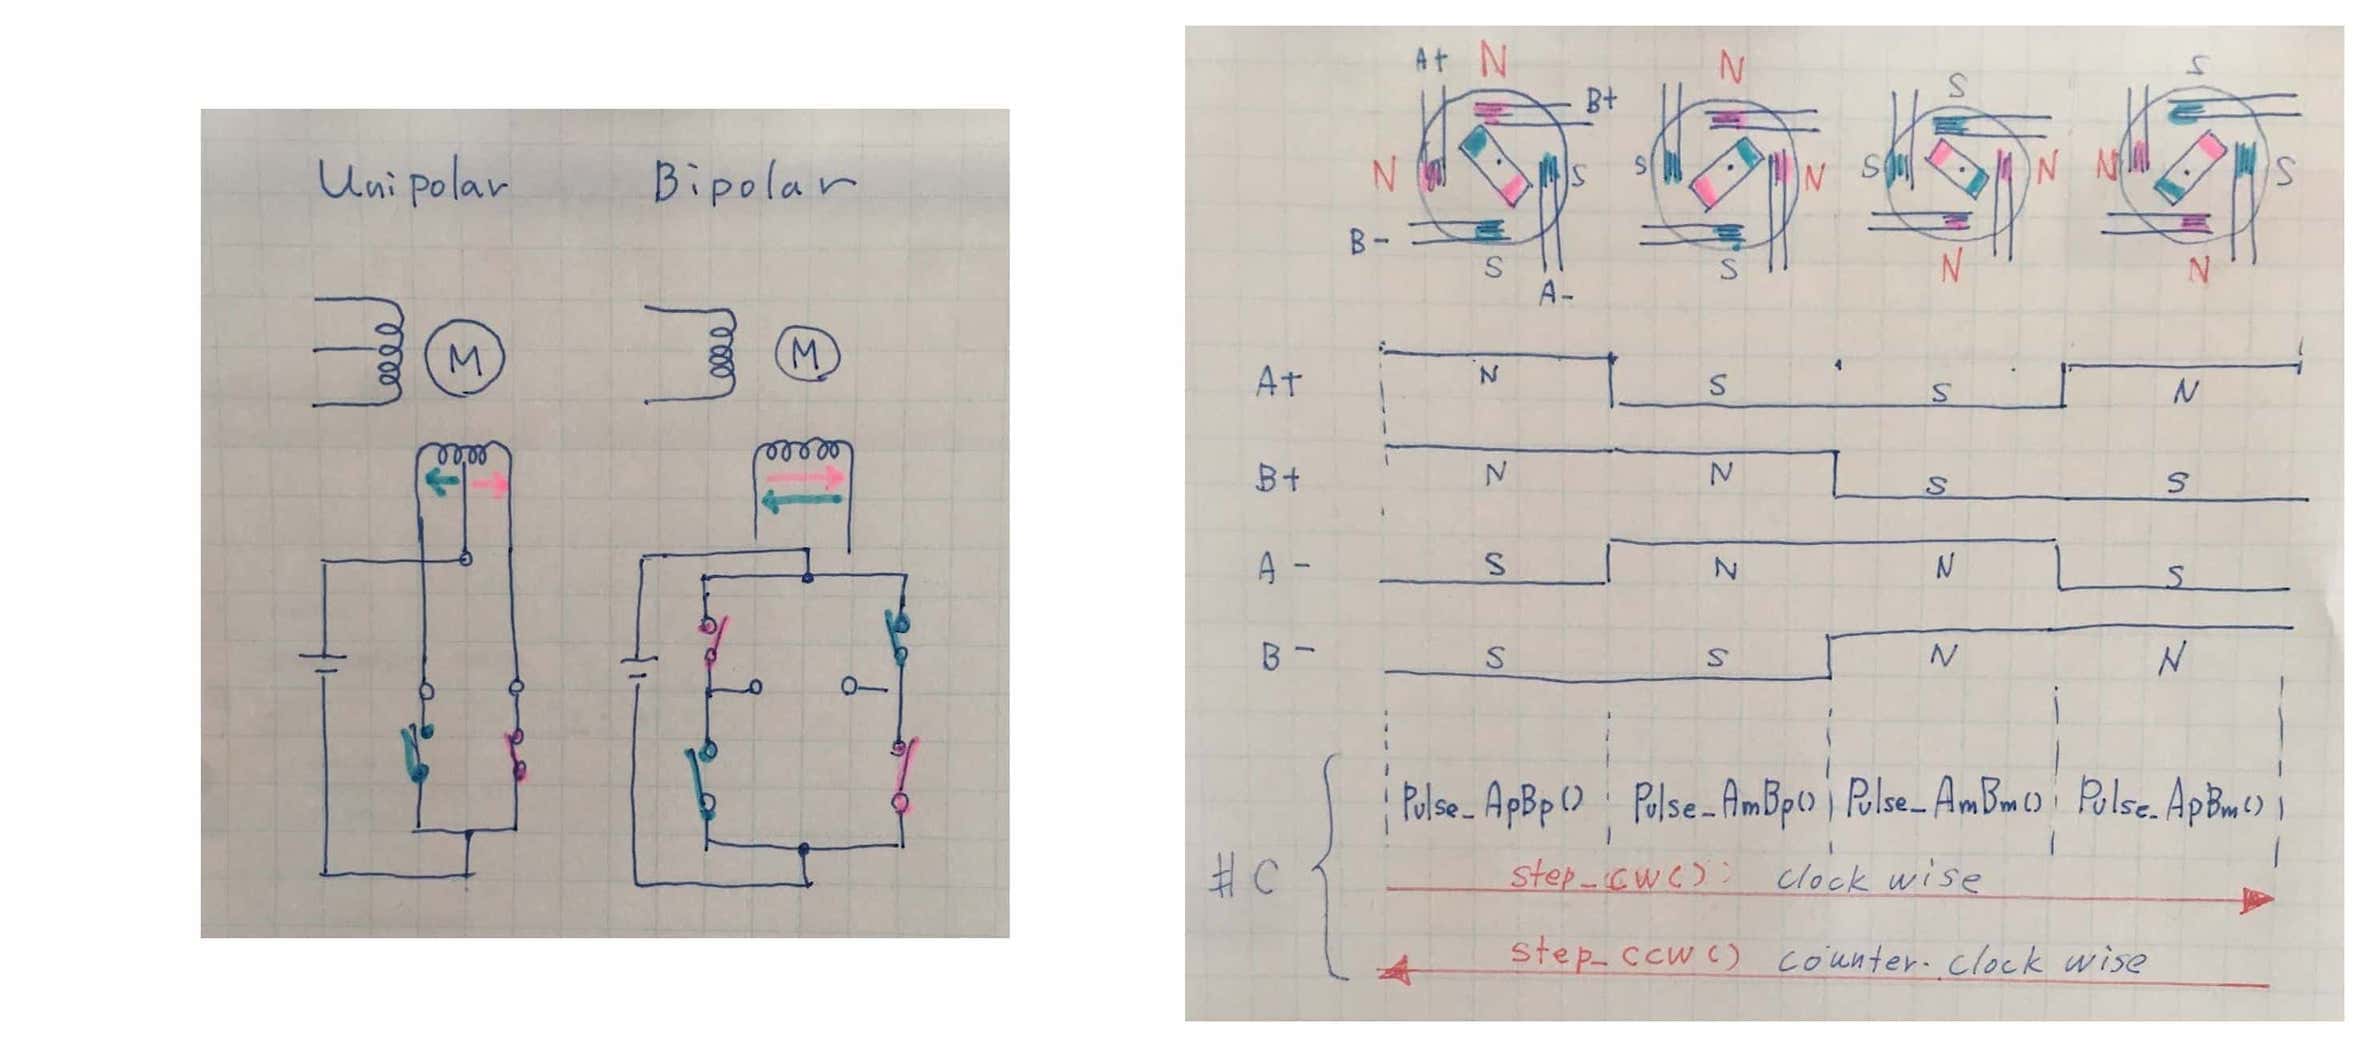 Unipolar Bipolar
M M
A+ N N S S
B+
N S S N S N N S
B-
S S N N
A-
A+ N S S N
B+ N N S S
A- S N N S
B- S S N N
Pulse_ApBp() Pulse_AmBp() Pulse_AmBm() Pulse_ApBm()
#C
step_cw(): clock wise
step_ccw() counter-clock wise